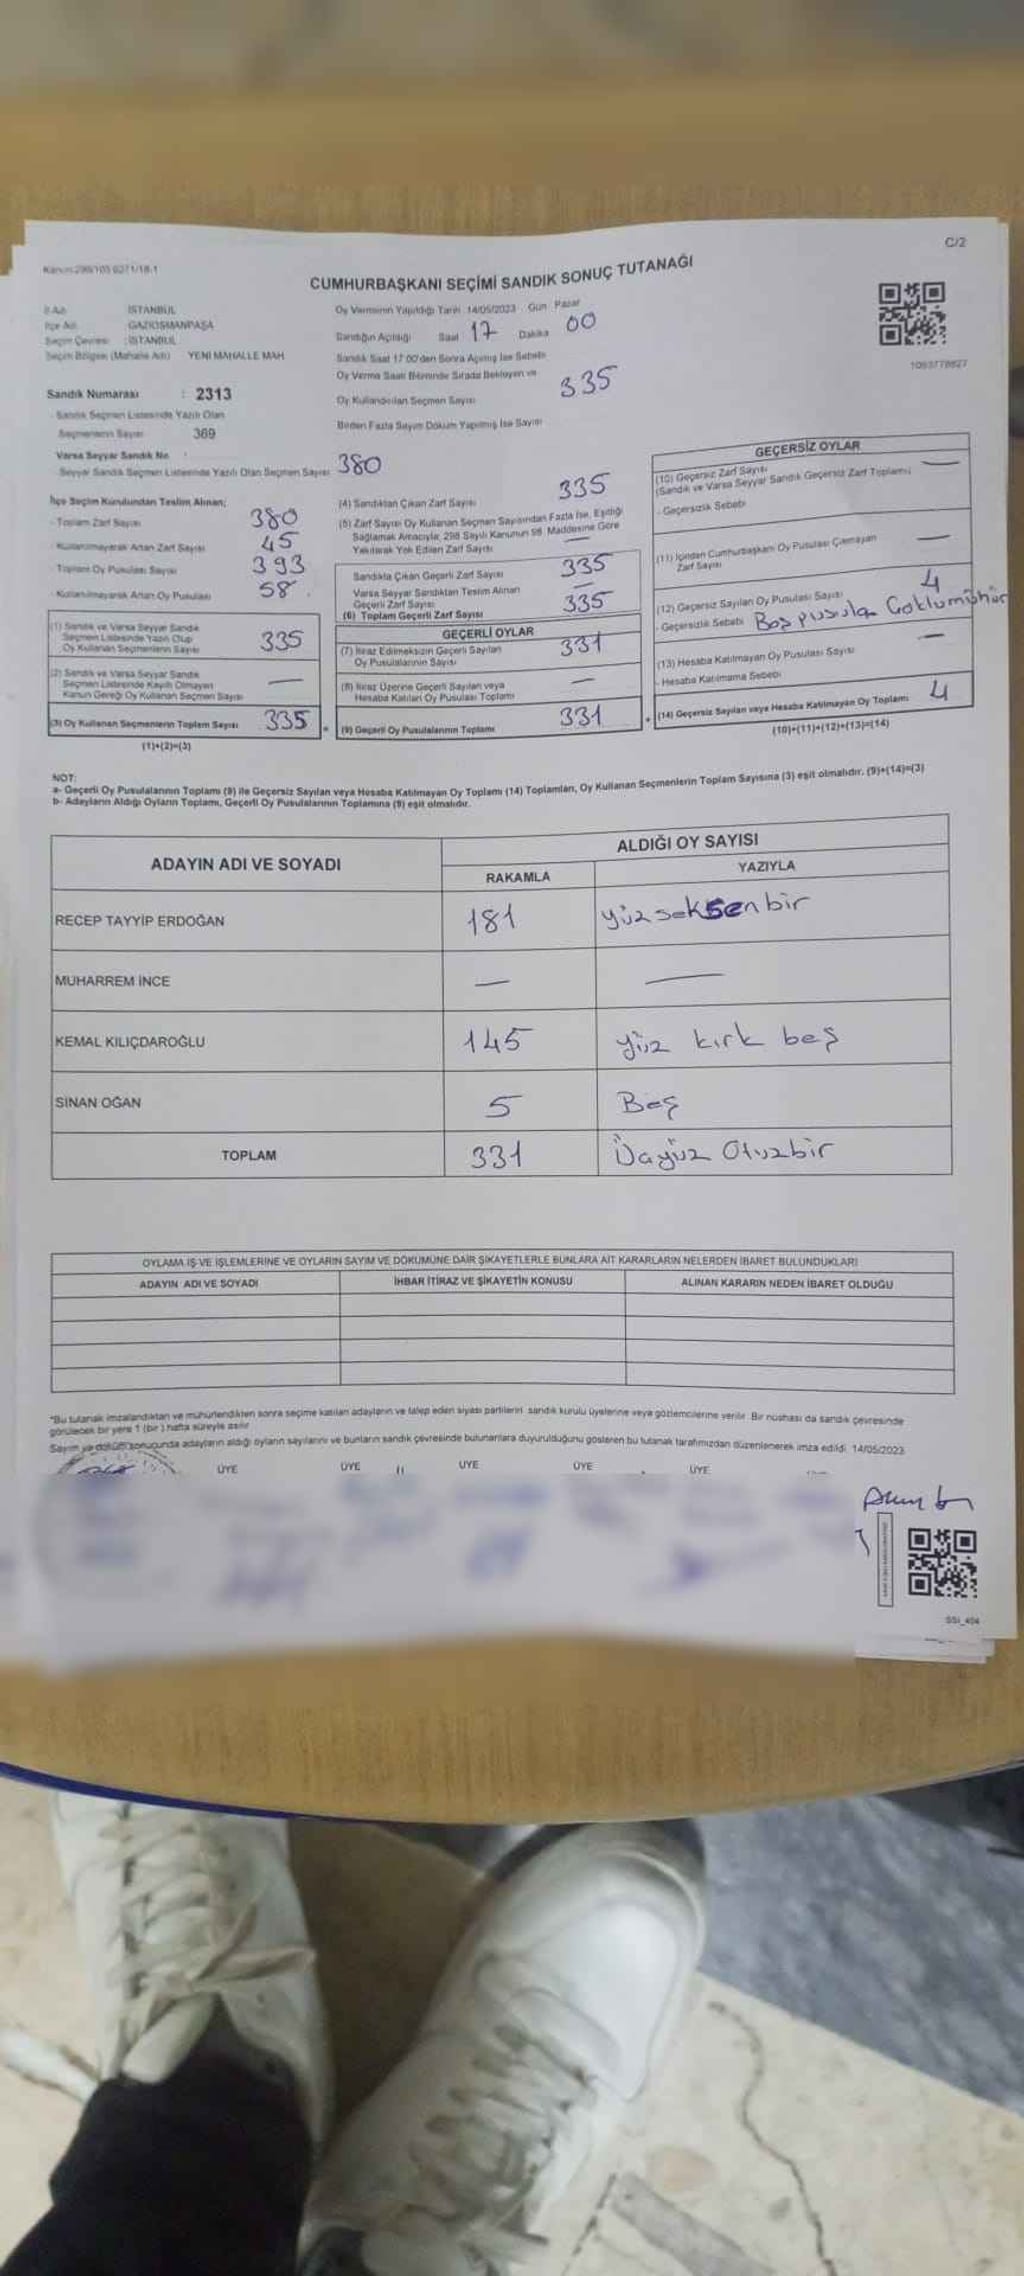 C/2
CUMHURBAŞKANI SEÇİMİ SANDIK SONUÇ TUTANAĞI
İl Adı : İSTANBUL
İlçe Adı : GAZİOSMANPAŞA
Seçim Çevresi : İSTANBUL
Seçim Bölgesi (Mahalle Adı) YENİ MAHALLE MAH
Sandık Numarası : 2313
- Sandık Seçmen Listesinde Yazılı Olan
Seçmenlerin Sayısı 369
Varsa Seyyar Sandık No :
Seyyar Sandık Seçmen Listesinde Yazılı Olan Seçmen Sayısı 380
Oy Vermenin Yapıldığı Tarih 14/05/2023 Gün Pazar
Sandığın Açıldığı Saat 17 Dakika 00
Sandık Saat 17:00'den Sonra Açılmış İse Sebebi
Oy Verme Saati Bitiminde Sırada Bekleyen ve
Oy Kullandırılan Seçmen Sayısı 335
Birden Fazla Sayım Döküm Yapılmış İse Sayısı
1093778827
İlçe Seçim Kurulundan Teslim Alınan;
- Toplam Zarf Sayısı 380
- Kullanılmayarak Artan Zarf Sayısı 45
- Toplam Oy Pusulası Sayısı 393
- Kullanılmayarak Artan Oy Pusulası 58
(1) Sandık ve Varsa Seyyar Sandık
Seçmen Listesinde Yazılı Olup
Oy Kullanan Seçmenlerin Sayısı 335
(2) Sandık ve Varsa Seyyar Sandık
Seçmen Listesinde Kayıtlı Olmayan
Kanun Gereği Oy Kullanan Seçmen Sayısı —
(3) Oy Kullanan Seçmenlerin Toplam Sayısı 335
(1)+(2)=(3)
(4) Sandıktan Çıkan Zarf Sayısı 335
(5) Zarf Sayısı Oy Kullanan Seçmen Sayısından Fazla İse, Eşitliği
Sağlamak Amacıyla; 298 Sayılı Kanunun 98. Maddesine Göre
Yakılarak Yok Edilen Zarf Sayısı —
Sandıkta Çıkan Geçerli Zarf Sayısı 335
Varsa Seyyar Sandıktan Teslim Alınan
Geçerli Zarf Sayısı —
(6) Toplam Geçerli Zarf Sayısı 335
GEÇERLİ OYLAR
(7) İtiraz Edilmeksizin Geçerli Sayılan
Oy Pusulalarının Sayısı 331
(8) İtiraz Üzerine Geçerli Sayılan veya
Hesaba Katılan Oy Pusulası Toplamı —
(9) Geçerli Oy Pusulalarının Toplamı 331
GEÇERSİZ OYLAR
(10) Geçersiz Zarf Sayısı
(Sandık ve Varsa Seyyar Sandık Geçersiz Zarf Toplamı) —
- Geçersizlik Sebebi
(11) İçinden Cumhurbaşkanı Oy Pusulası Çıkmayan
Zarf Sayısı —
(12) Geçersiz Sayılan Oy Pusulası Sayısı 4
- Geçersizlik Sebebi Boş pusula Çoklumühür
(13) Hesaba Katılmayan Oy Pusulası Sayısı —
- Hesaba Katılmama Sebebi
(14) Geçersiz Sayılan veya Hesaba Katılmayan Oy Toplamı 4
(10)+(11)+(12)+(13)=(14)
NOT:
a- Geçerli Oy Pusulalarının Toplamı (9) ile Geçersiz Sayılan veya Hesaba Katılmayan Oy Toplamı (14) Toplamları, Oy Kullanan Seçmenlerin Toplam Sayısına (3) eşit olmalıdır. (9)+(14)=(3)
b- Adayların Aldığı Oyların Toplamı, Geçerli Oy Pusulalarının Toplamına (9) eşit olmalıdır.
ADAYIN ADI VE SOYADI
ALDIĞI OY SAYISI
RAKAMLA YAZIYLA
RECEP TAYYİP ERDOĞAN 181 yüzseksenbir
MUHARREM İNCE — —
KEMAL KILIÇDAROĞLU 145 yüz kırk beş
SİNAN OĞAN 5 Beş
TOPLAM 331 Üçyüz Otuzbir
OYLAMA İŞ VE İŞLEMLERİNE VE OYLARIN SAYIM VE DÖKÜMÜNE DAİR ŞİKAYETLERLE BUNLARA AİT KARARLARIN NELERDEN İBARET BULUNDUKLARI
ADAYIN ADI VE SOYADI İHBAR İTİRAZ VE ŞİKAYETİN KONUSU ALINAN KARARIN NEDEN İBARET OLDUĞU
*Bu tutanak imzalandıktan ve mühürlendikten sonra seçime katılan adayların ve talep eden siyasi partilerin sandık kurulu üyelerine veya gözlemcilerine verilir. Bir nüshası da sandık çevresinde
görülecek bir yere 1 (bir) hafta süreyle asılır
Sayım ve döküm sonucunda adayların aldığı oyların sayılarını ve bunların sandık çevresinde bulunanlara duyurulduğunu gösteren bu tutanak tarafımızdan düzenlenerek imza edildi. 14/05/2023
ÜYE ÜYE ÜYE ÜYE ÜYE